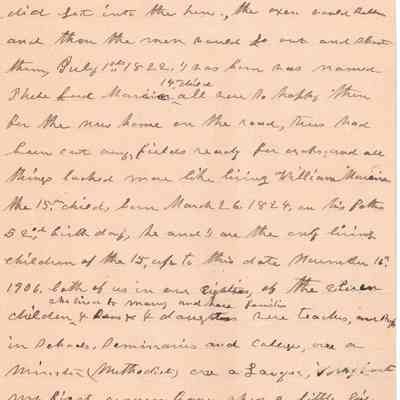 did get into the
and then the men would go out and
them, July 1st 1822, I was born was named
14th child
Phebe all were so happy then
for the new home on the road, trees had
been cut away, fields ready for crops, and all
things looked more like living William
the 15th child, born March 26 1824, on his
52nd birth day, he and I are the only living
children of the 15, up to this date November 16th
1906. both of us in our eighties, of the eleven
children to marry and have families
children, & & daughters were teachers,
in Schools, Seminaries and College, one a
Minister (Methodist) one a Lawyer,
my first a little